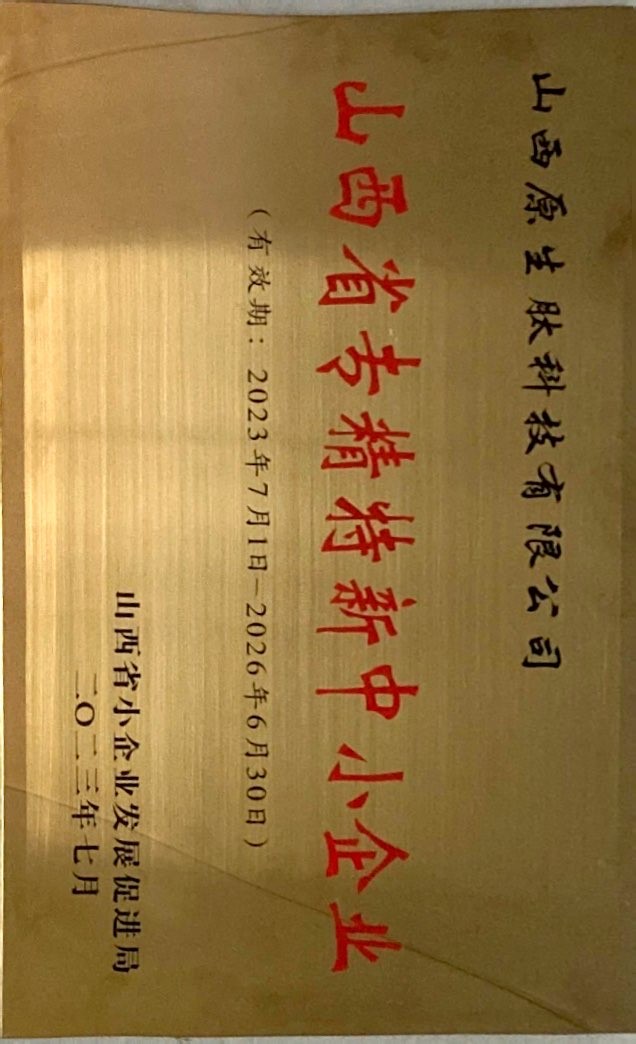 山西原生肽科技有限公司
山西省专精特新中小企业
（有效期：2023年7月1日－2026年6月30日）
山西省小企业发展促进局
二〇二三年七月